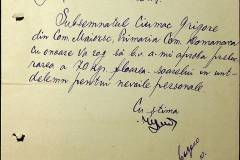 Subsemnatul Ciumac Grigore
din Com. Maiorsc, Primaria Com. Romanova
cu onoare Vă rog să b.a a-mi aproba prelu-
rarea a 70 kgr. floarea soarelui in unt-
delemn pentru nevoile personale
Cu stima